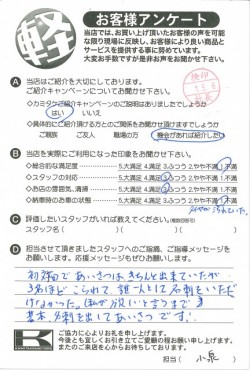 軽
お客様アンケート
当店では、お買い上げ頂いたお客様の声を可能
な限り現場に反映し、お客様により良い商品と
サービスを提供する事に努めています。
大変お手数ですが是非お声をお聞かせ下さい。
検印
A 当店はご紹介を大切にしております。
ご紹介キャンペーンについてお聞かせ下さい。
◇カミタケご紹介キャンペーンのご説明はありましたでしょうか
はい いいえ
◇具体的にご紹介頂ける方とのご関係をお聞かせ頂けますでしょうか
ご親族 ご友人 職場の方 機会があれば紹介したい
B 当店を実際にご利用になった印象をお聞かせ下さい。
◇総合的な満足度 5.大満足 4.満足 3.ふつう 2.やや不満 1.不満
◇スタッフの対応 5.大満足 4.満足 3.ふつう 2.やや不満 1.不満
◇お店の雰囲気、清掃 5.大満足 4.満足 3.ふつう 2.やや不満 1.不満
◇納車時のお車の状態 5.大満足 4.満足 3.ふつう 2.やや不満 1.不満
C 評価したいスタッフがいれば教えてください。(複数回答可)
スタッフ名( )( )( )
D 担当させて頂きましたスタッフへのご指摘、ご指導メッセージを
お願いします。応援メッセージもぜひお願いします。
初対面であいさつはきちんと出来ていたが
3名ほどこられて誰一人として名刺をいただ
けなかった。
基本、名刺を出してあいさつです。
K
ご協力に心よりお礼を申し上げます。
今後とも宜しくお引き立てご愛顧の程お願い申し上げます。
またのご来店を心からお待ちしております。
担当( 小泉 )